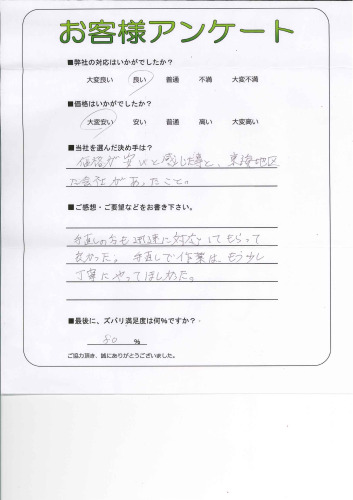 お客様アンケート
■弊社の対応はいかがでしたか？
大変良い 良い 普通 不満 大変不満
■価格はいかがでしたか？
大変安い 安い 普通 高い 大変高い
■当社を選んだ決め手は？
価格が安いと感じた事と、東海地区
に会社があったこと。
■ご感想・ご要望などをお書き下さい。
手直しの方も迅速に対応してもらって
良かった。手直しで作業は、もう少し
丁寧にやってほしかった。
■最後に、ズバリ満足度は何％ですか？
80 %
ご協力頂き、誠にありがとうございました。